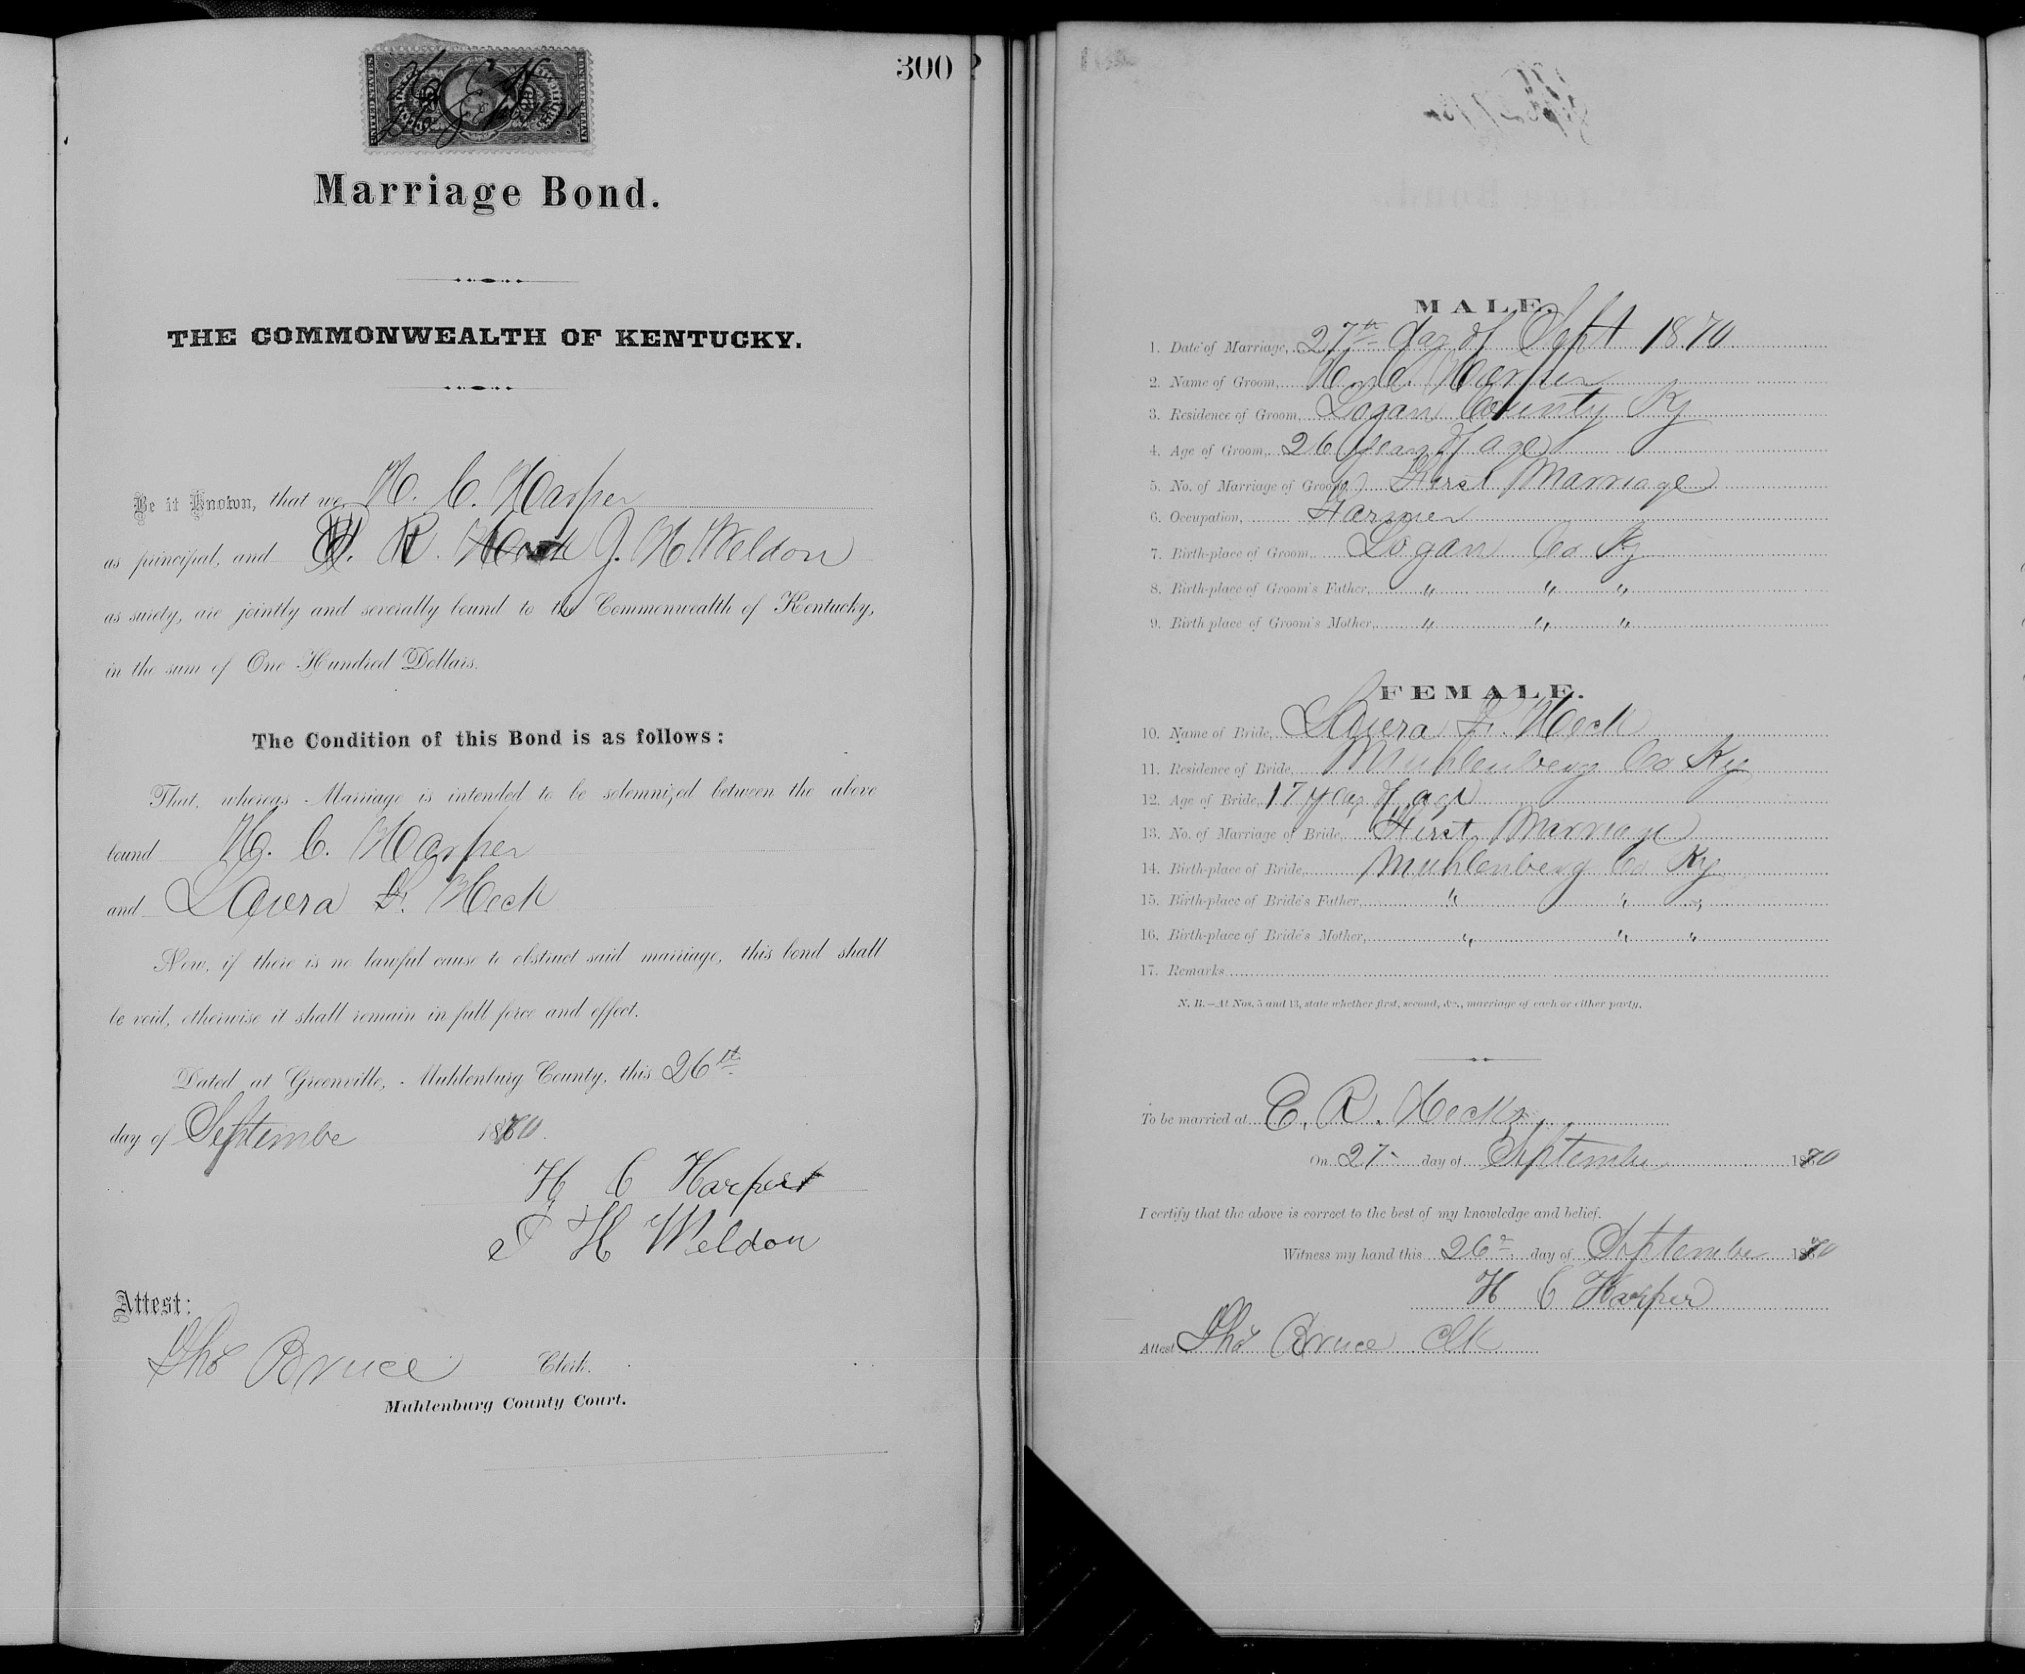 300
UNITED STATES
INTER. REVENUE
H C H
26 Sept 1870
Marriage Bond.
THE COMMONWEALTH OF KENTUCKY.
Be it Known, that we H. C. Harper
as principal, and R. J. H. Weldon
as surety, are jointly and severally bound to the Commonwealth of Kentucky,
in the sum of One Hundred Dollars.
The Condition of this Bond is as follows:
That, whereas Marriage is intended to be solemnized between the above
bound H. C. Harper
and Laura F. Heck
Now, if there is no lawful cause to obstruct said marriage, this bond shall
be void, otherwise it shall remain in full force and effect.
Dated at Greenville, Muhlenburg County, this 26th
day of Septembe 1870.
H C Harper
J H Weldon
Attest:
Thos Bruce Clerk.
Muhlenburg County Court.
MALE.
1. Date of Marriage, 27th day of Sept 1870
2. Name of Groom, Harper
3. Residence of Groom, Logan County Ky
4. Age of Groom, 26 years of age
5. No. of Marriage of Groom, First Marriage
6. Occupation, Farmer
7. Birth-place of Groom, Logan Co Ky
8. Birth-place of Groom's Father, " " "
9. Birth place of Groom's Mother, " " "
FEMALE.
10. Name of Bride, Laura F. Heck
11. Residence of Bride, Muhlenberg Co Ky
12. Age of Bride, 17 years of age
13. No. of Marriage of Bride, First Marriage
14. Birth-place of Bride, Muhlenberg Co Ky
15. Birth-place of Bride's Father, " " "
16. Birth-place of Bride's Mother, " " "
17. Remarks
N. B.—At Nos. 5 and 13, state whether first, second, &c., marriage of each or either party.
To be married at E. R. Hecks
On 27 day of September 1870
I certify that the above is correct to the best of my knowledge and belief.
Witness my hand this 26th day of September 1870
H C Harper
Attest Thos Bruce Clk